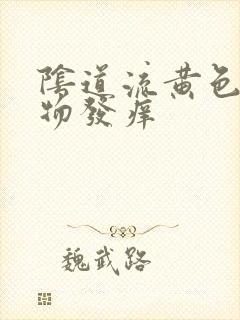 陰道流黃色
物發痒
魏武路